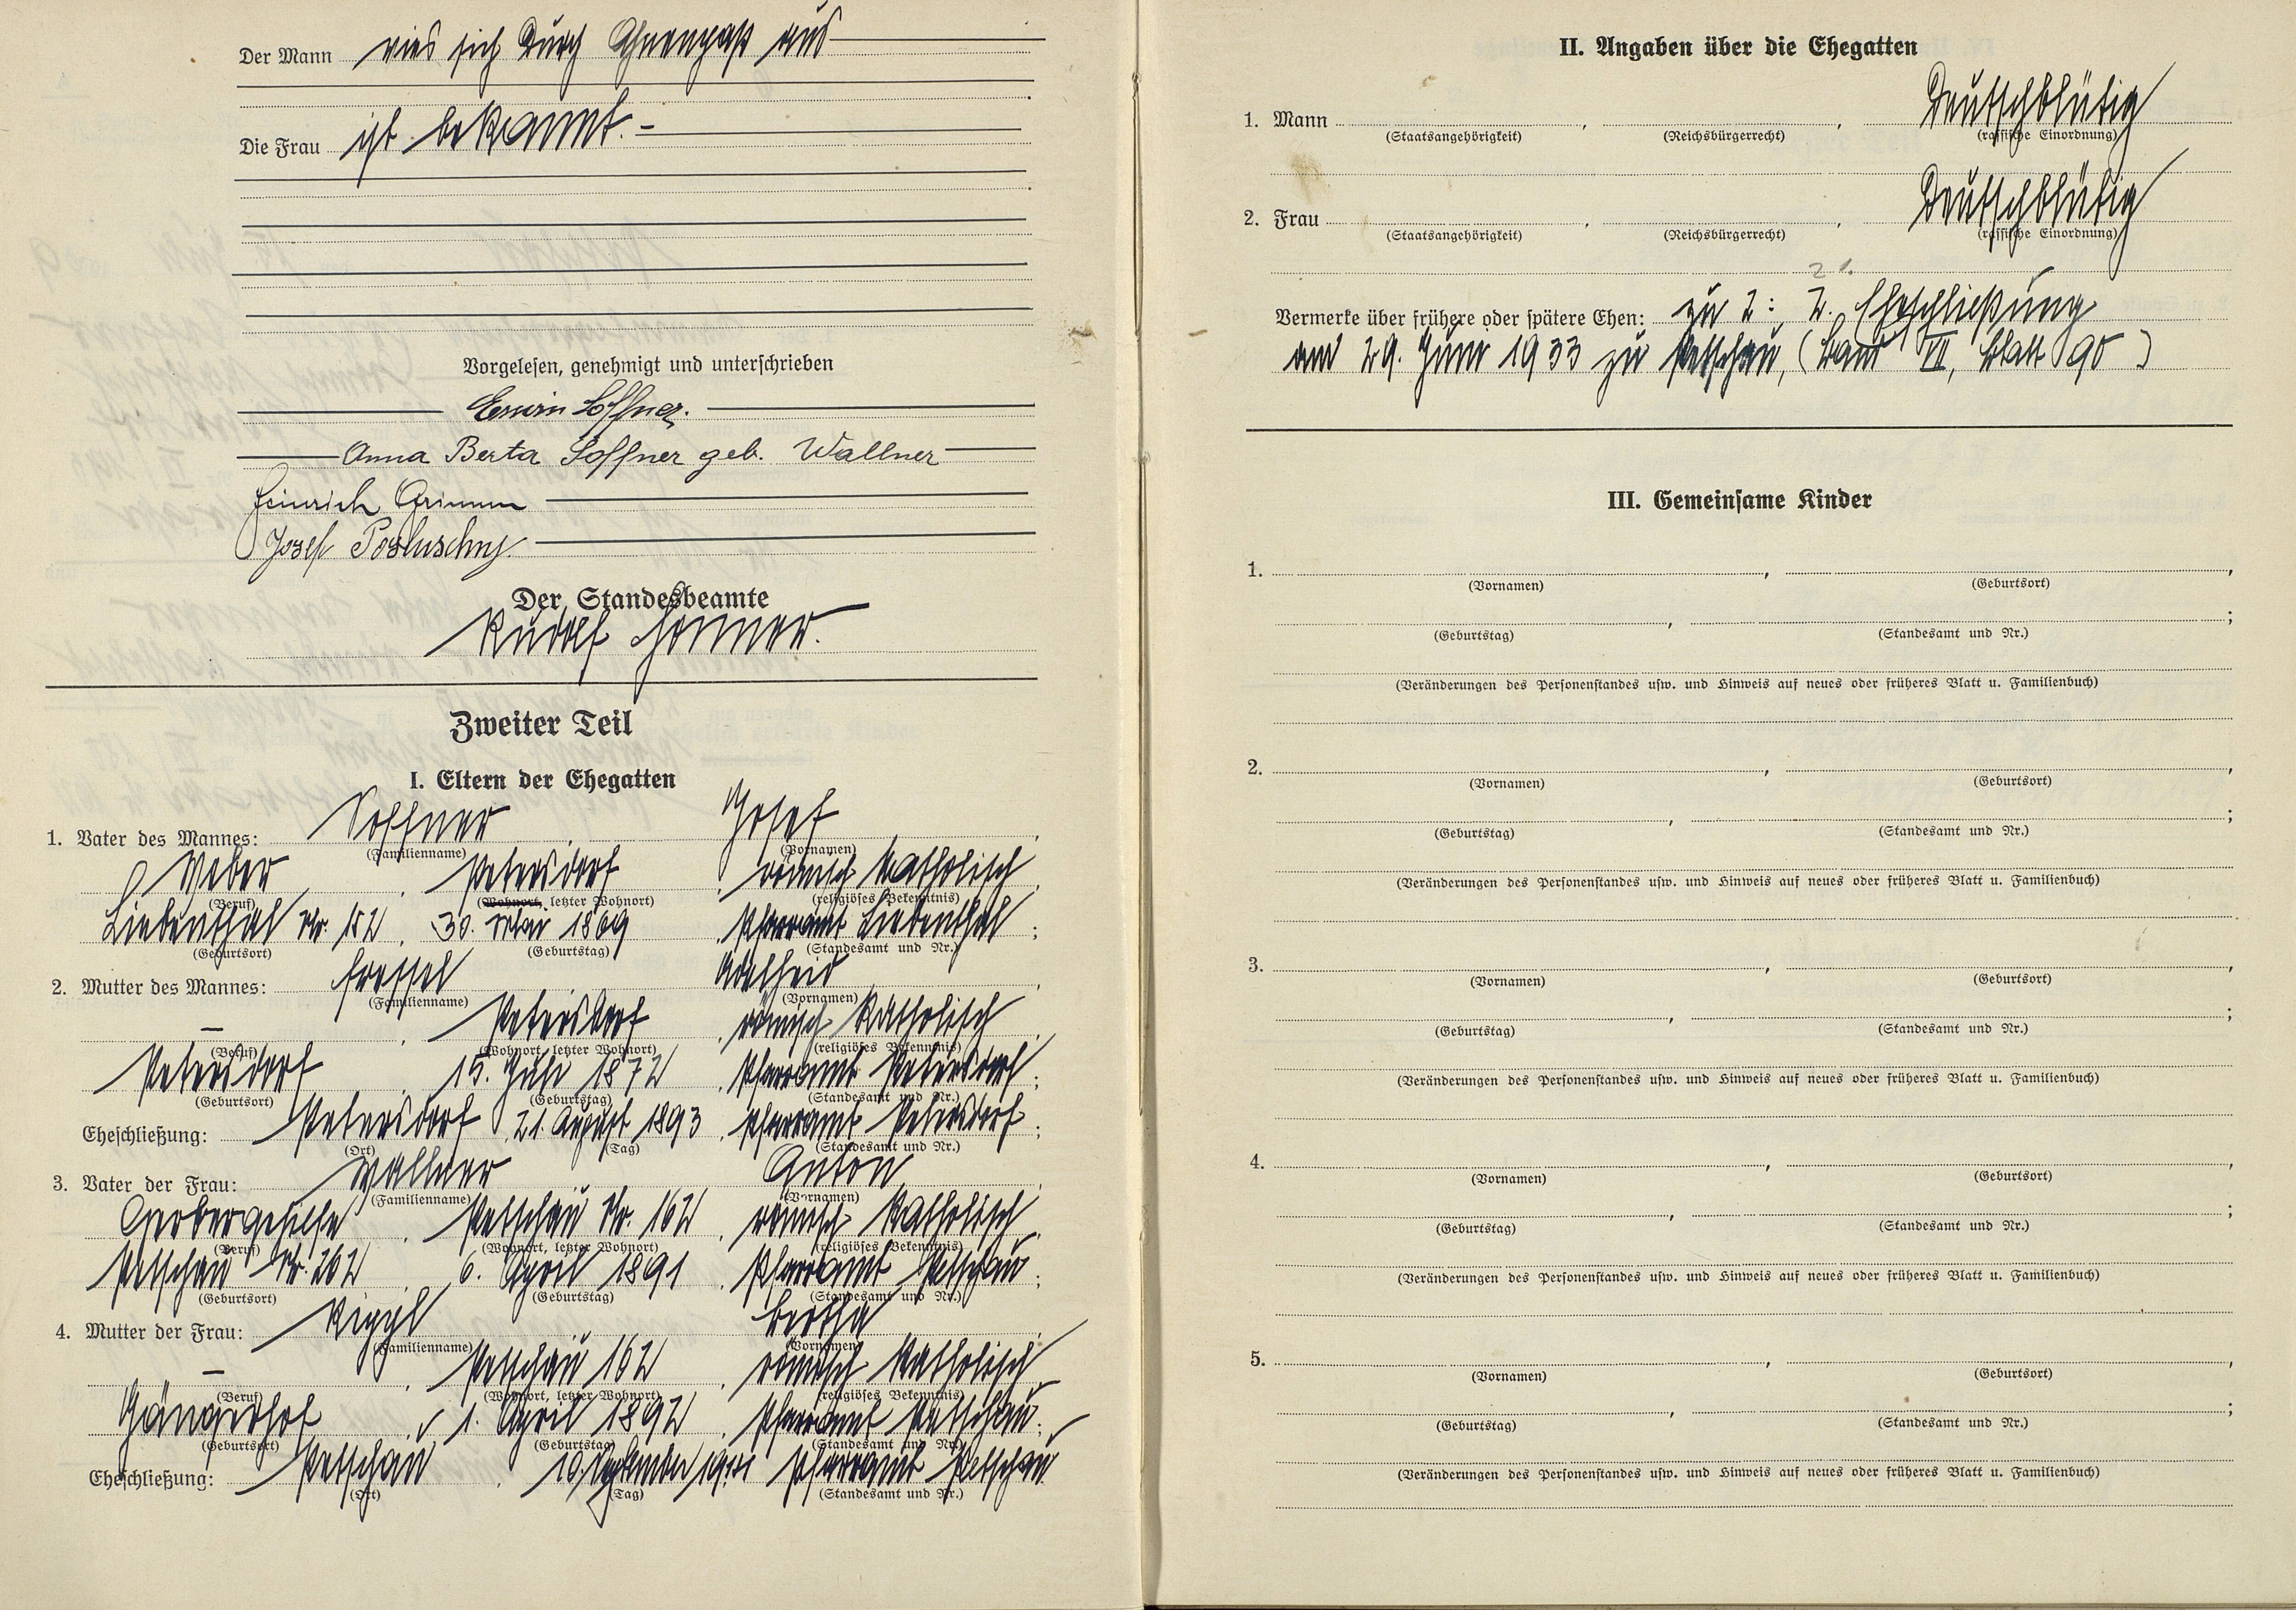 Der Mann wies sich durch Ahnenpaß aus
Die Frau ist bekannt. –
Vorgelesen, genehmigt und unterschrieben
Erwin Soffner.
Anna Berta Soffner geb. Wallner
Heinrich Grimm
Josef Posluschny.
Der Standesbeamte
Rudolf
Zweiter Teil
I. Eltern der Ehegatten
1. Vater des Mannes: Soffner, Josef,
(Familienname) (Vornamen)
Weber, Petersdorf, römisch katholisch,
(Beruf) (Wohnort, letzter Wohnort) (religiöses Bekenntnis)
Liebenthal Nr. 152, 30. Mai 1869, Pfarramt Liebenthal;
(Geburtsort) (Geburtstag) (Standesamt und Nr.)
2. Mutter des Mannes: Adelheid,
(Familienname) (Vornamen)
–, Petersdorf, römisch katholisch,
(Beruf) (Wohnort, letzter Wohnort) (religiöses Bekenntnis)
Petersdorf, 15. Juli 1872, Pfarramt Petersdorf;
(Geburtsort) (Geburtstag) (Standesamt und Nr.)
Eheschließung: Petersdorf, 21. August 1893, Pfarramt Petersdorf;
(Ort) (Tag) (Standesamt und Nr.)
3. Vater der Frau: Wallner, Anton,
(Familienname) (Vornamen)
Gerbergehilfe, Petschau Nr. 162, römisch katholisch,
(Beruf) (Wohnort, letzter Wohnort) (religiöses Bekenntnis)
Petschau Nr. 262, 6. April 1891, Pfarramt Petschau;
(Geburtsort) (Geburtstag) (Standesamt und Nr.)
4. Mutter der Frau: Riggl, Bertha,
(Familienname) (Vornamen)
–, Petschau 162, römisch katholisch,
(Beruf) (Wohnort, letzter Wohnort) (religiöses Bekenntnis)
Gängerhof, 1. April 1892, Pfarramt Petschau;
(Geburtsort) (Geburtstag) (Standesamt und Nr.)
Eheschließung: Petschau, 10. September Pfarramt Petschau
(Ort) (Tag) (Standesamt und Nr.)
II. Angaben über die Ehegatten
1. Mann , , Deutschblütig
(Staatsangehörigkeit) (Reichsbürgerrecht) (rassische Einordnung)
2. Frau , , Deutschblütig
(Staatsangehörigkeit) (Reichsbürgerrecht) (rassische Einordnung)
Vermerke über frühere oder spätere Ehen: zu 2: 2. Eheschließung
am 29. Juni 1933 zu Petschau, (Band VII, Blatt 90)
III. Gemeinsame Kinder
1. , ,
(Vornamen) (Geburtsort)
, ;
(Geburtstag) (Standesamt und Nr.)
(Veränderungen des Personenstandes usw. und Hinweis auf neues oder früheres Blatt u. Familienbuch)
2. , ,
(Vornamen) (Geburtsort)
, ;
(Geburtstag) (Standesamt und Nr.)
(Veränderungen des Personenstandes usw. und Hinweis auf neues oder früheres Blatt u. Familienbuch)
3. , ,
(Vornamen) (Geburtsort)
, ;
(Geburtstag) (Standesamt und Nr.)
(Veränderungen des Personenstandes usw. und Hinweis auf neues oder früheres Blatt u. Familienbuch)
4. , ,
(Vornamen) (Geburtsort)
, ;
(Geburtstag) (Standesamt und Nr.)
(Veränderungen des Personenstandes usw. und Hinweis auf neues oder früheres Blatt u. Familienbuch)
5. , ,
(Vornamen) (Geburtsort)
, ;
(Geburtstag) (Standesamt und Nr.)
(Veränderungen des Personenstandes usw. und Hinweis auf neues oder früheres Blatt u. Familienbuch)